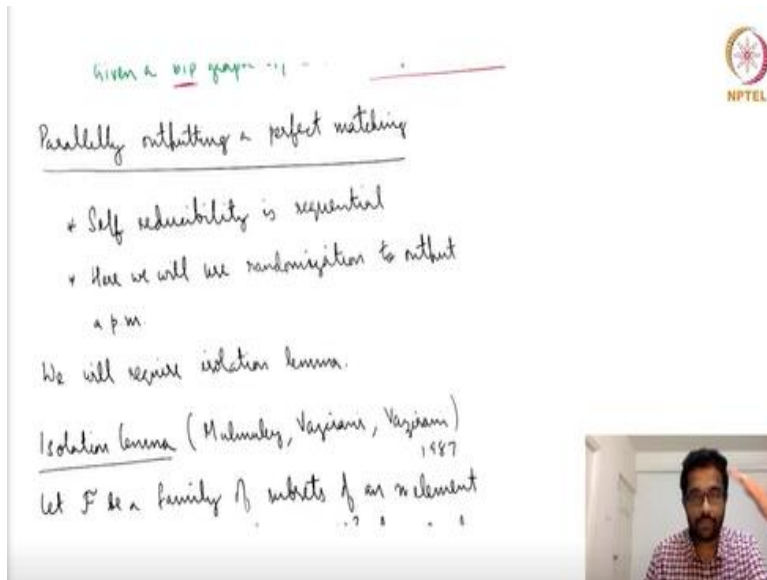 Given a bip graph
NPTEL
Parallelly outputting a perfect matching
* Self reducibility is sequential
* Here we will use randomization to output
a p m.
We will require isolation lemma.
Isolation lemma (Mulmuley, Vazirani, Vazirani)
1987
Let F be a family of subsets of an n element